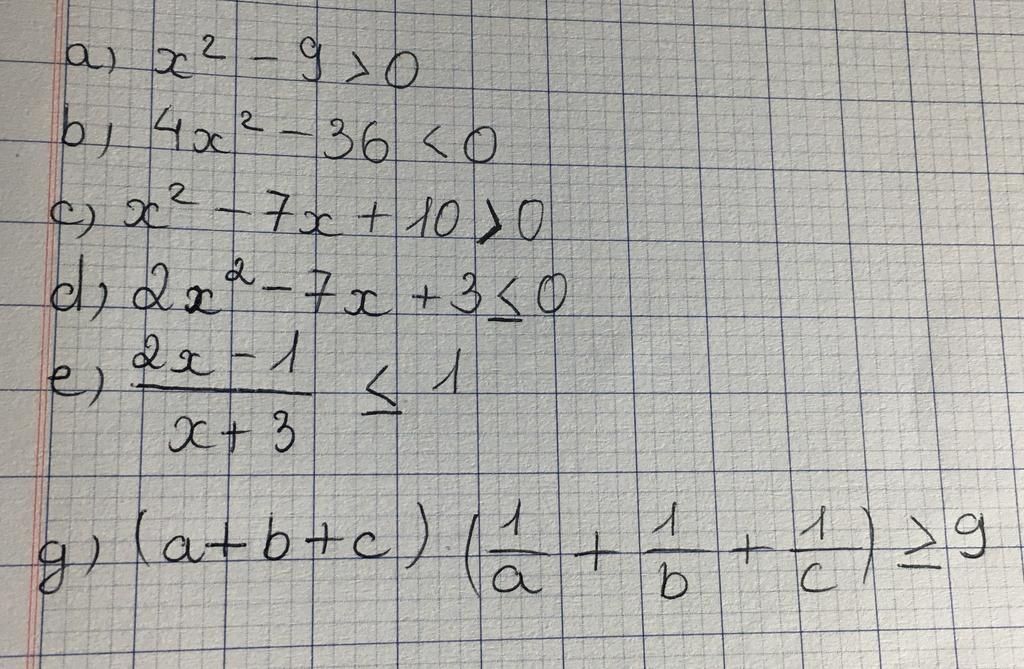 a) x² - 9 > 0
b) 4x² - 36 < 0
c) x² - 7x + 10 > 0
d) 2x² - 7x + 3 ≤ 0
e) (2x - 1)/(x + 3) ≤ 1
g) (a + b + c) · (1/a + 1/b + 1/c) ≥ 9